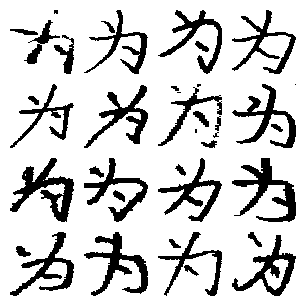 为为为为
为为为为
为为为为
为为为为